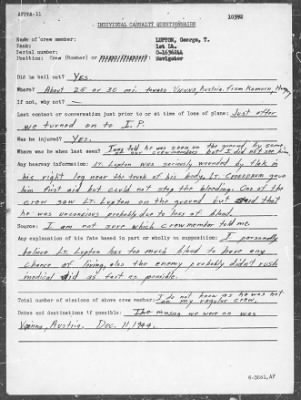 AFPPA-11
10392
INDIVIDUAL CASUALTY QUESTIONNAIRE
Name of crew member: LUPTON, George, T.
Rank: 1st Lt.
Serial number:
Position: Crew (Bomber) or Navigator
Did he bail out? Yes.
Where? About 25 or 30 mi. towards Vienna, Austria, from Komorn, Hung
If not, why not? —
Last contact or conversation just prior to or at time of loss of plane: Just after
we turned on to I.P.
Was he injured? Yes.
Where was he when last seen? I was told he was seen on the ground by some
of our crewmembers but I did not see him.
Any hearsay information: Lt. Lupton was seriously wounded by flak in
his right leg near the trunk of his body. Lt. gave
him first aid but could not stop the bleeding. One of the
crew saw Lt. Lupton on the ground but said that
he was unconcious probably due to loss of blood.
Source: I am not sure which crewmember told me.
Any explanation of his fate based in part or wholly on supposition: I personally
believe Lt. Lupton lost too much blood to have any
chance of living, also the enemy probably didn't rush
medical aid as fast as possible.
Total number of missions of above crew member: I do not know as he was not
on my regular crew.
Dates and destinations if possible: The mission we were on was
Vienna, Austria. Dec. 11, 1944.
6-3861,AF